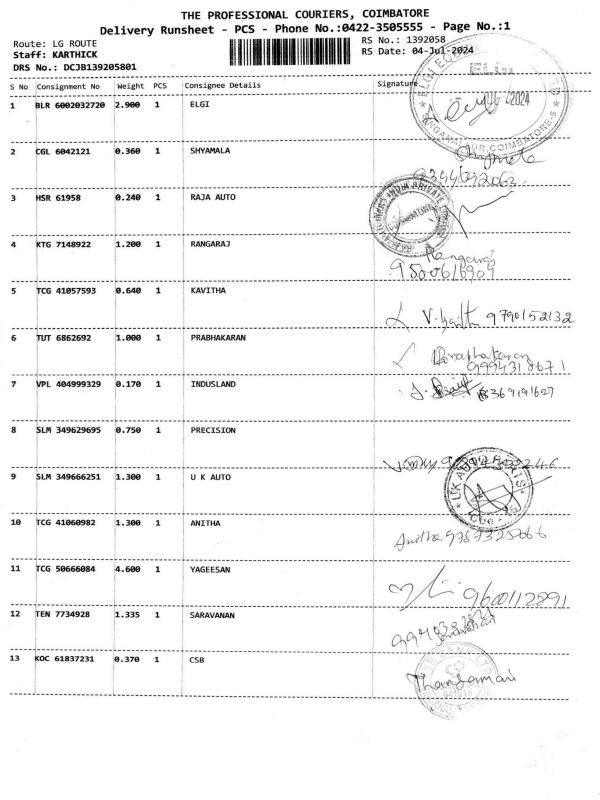 THE PROFESSIONAL COURIERS, COIMBATORE
Delivery Runsheet - PCS - Phone No.:0422-3505555 - Page No.:1
Route: LG ROUTE
RS No.: 1392058
Staff: KARTHICK
RS Date: 04-Jul-2024
DRS No.: DCJB139205801
S No Consignment No Weight PCS Consignee Details Signature
1 BLR 6002032720 2.900 1 ELGI
2024
2 CGL 6042121 0.360 1 SHYAMALA
3 HSR 61958 0.240 1 RAJA AUTO
4 KTG 7148922 1.200 1 RANGARAJ
Rangaraj
5 TCG 41057593 0.640 1 KAVITHA
9790152132
6 TUT 6862692 1.000 1 PRABHAKARAN
Prabhakaran
9994318671
7 VPL 404999329 0.170 1 INDUSLAND
8 SLM 349629695 0.750 1 PRECISION
9 SLM 349666251 1.300 1 U K AUTO
10 TCG 41060982 1.300 1 ANITHA
Anitha
11 TCG 50666084 4.600 1 YAGEESAN
9600112891
12 TEN 7734928 1.335 1 SARAVANAN
13 KOC 61837231 0.370 1 CSB